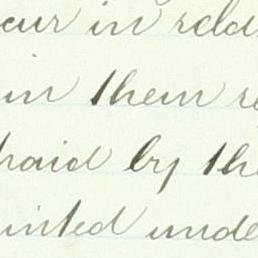 cur in rela
in them re
paid by the
inted unde